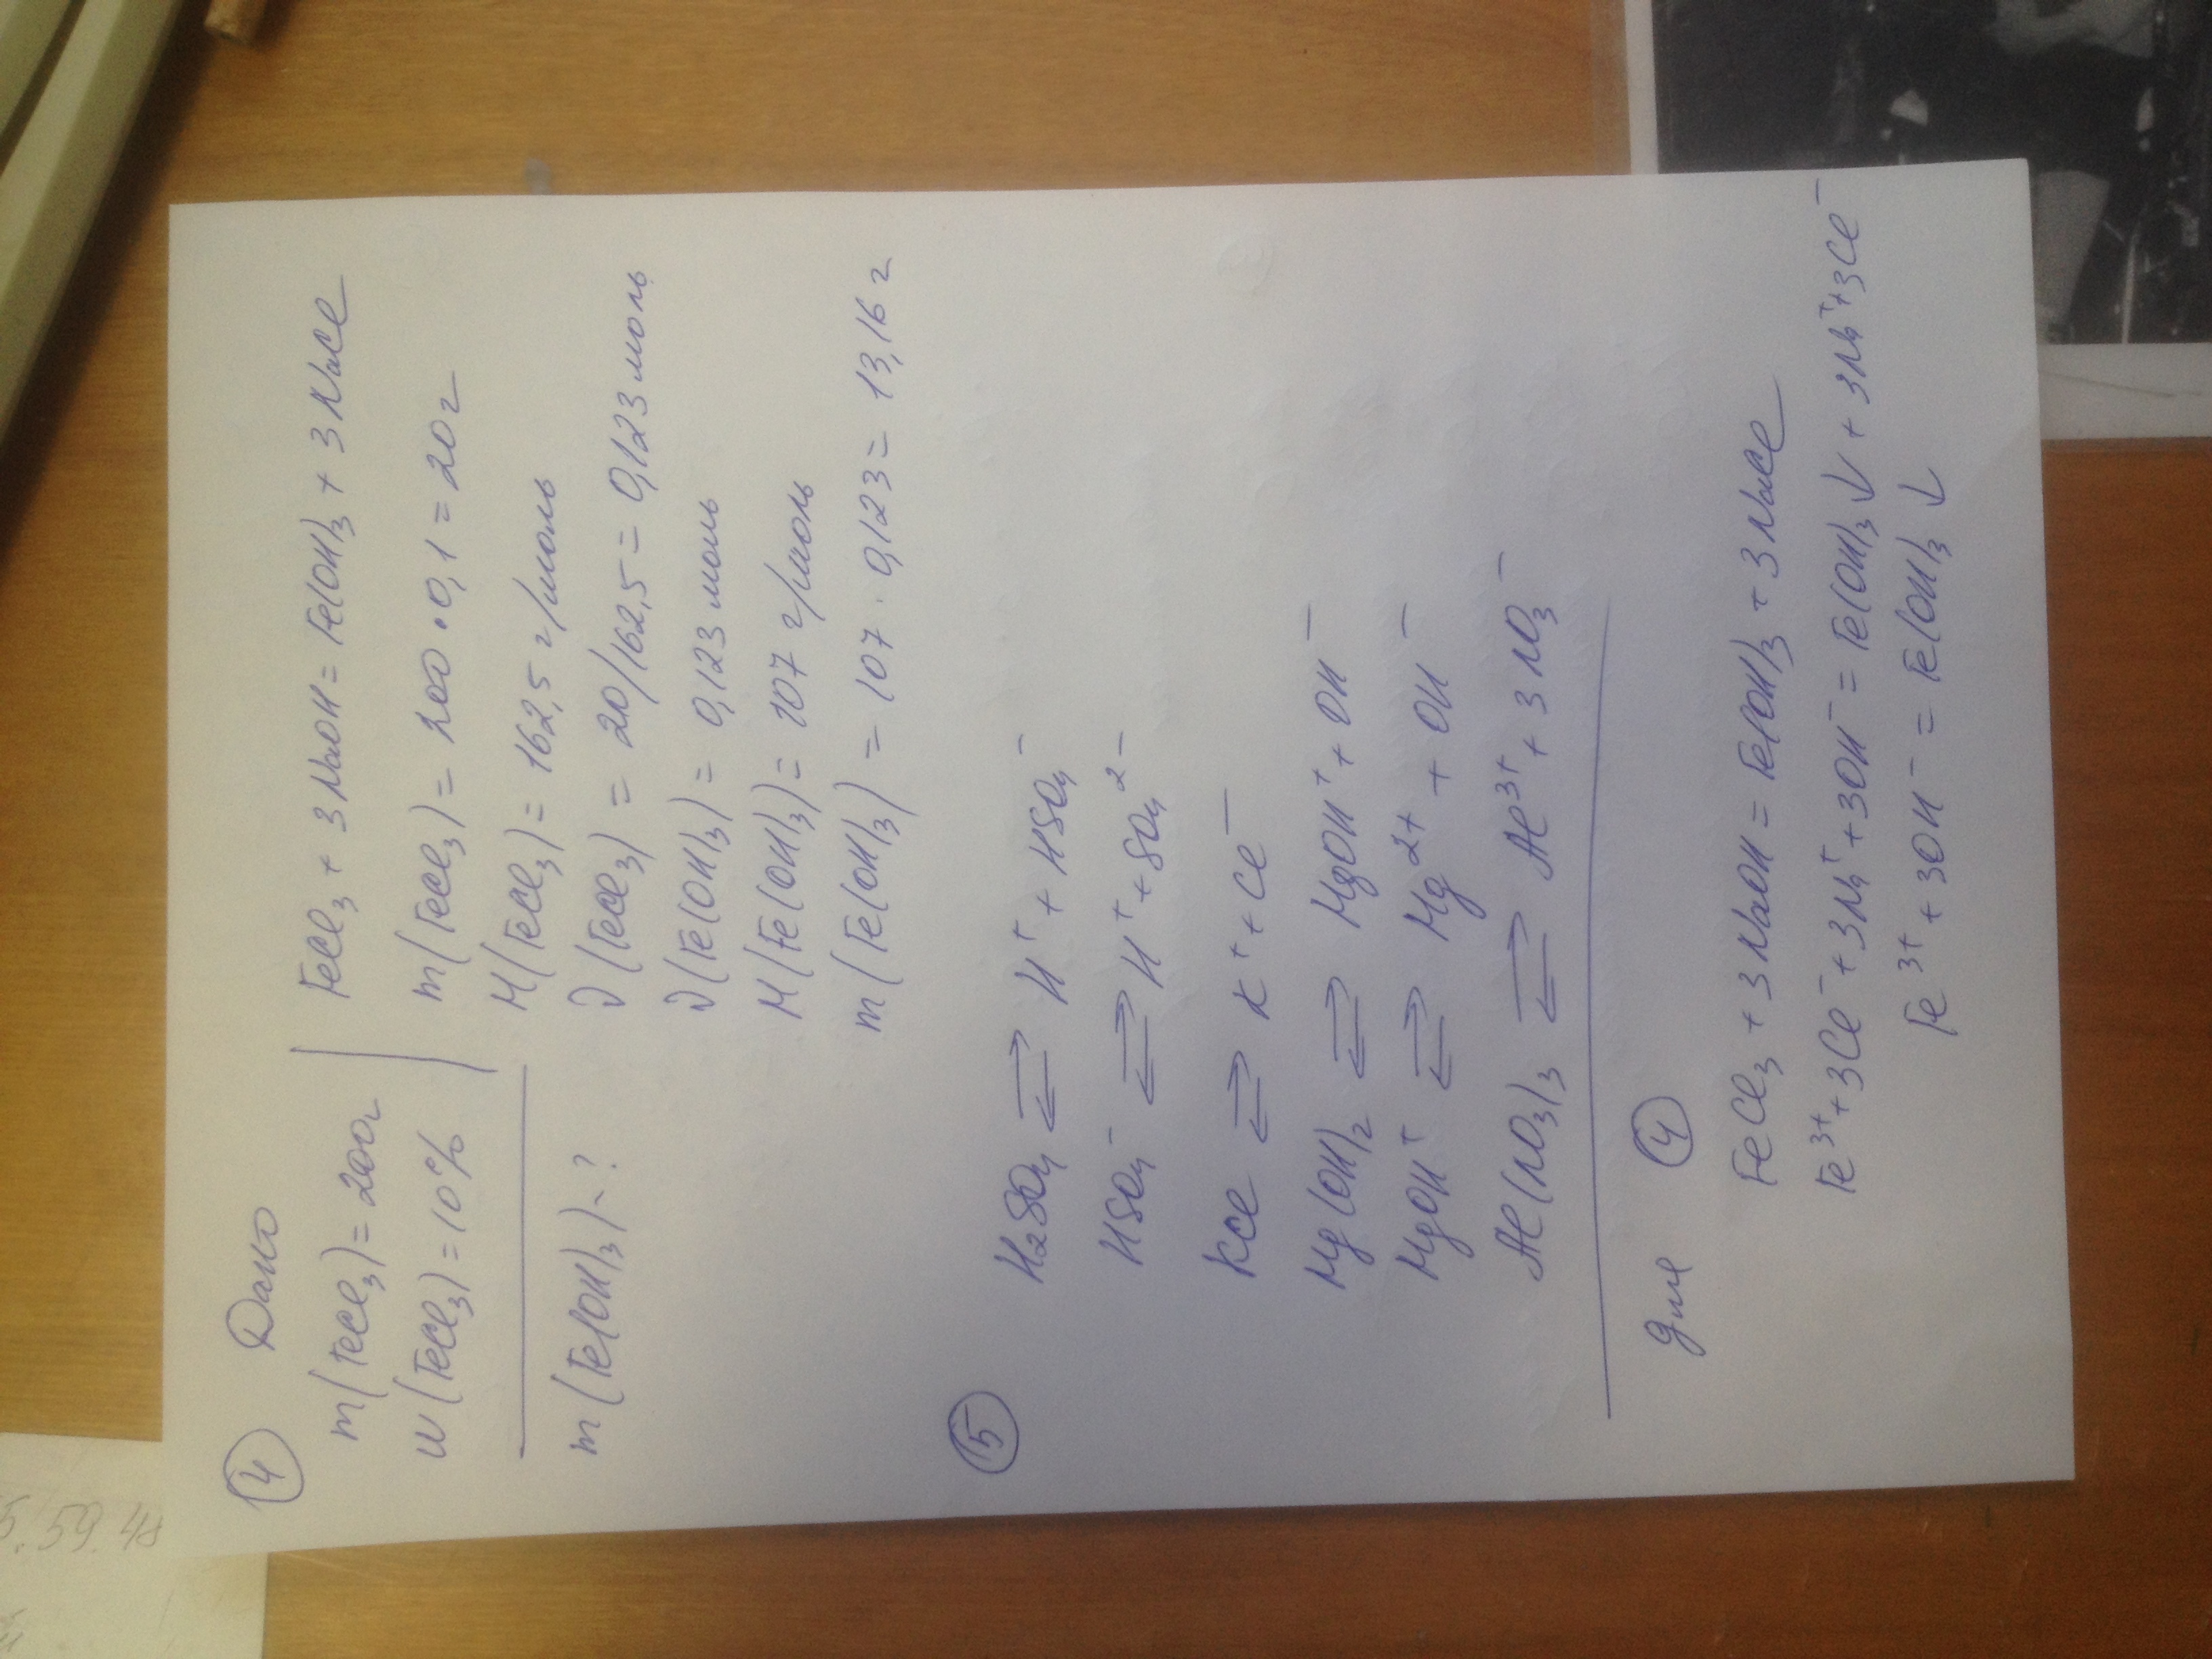 ④ Дано
m(FeCl₃) = 200г
w(FeCl₃) = 10%
m(Fe(OH)₃) - ?
FeCl₃ + 3NaOH = Fe(OH)₃ + 3NaCl
m(FeCl₃) = 200 · 0,1 = 20г
M(FeCl₃) = 162,5 г/моль
ν(FeCl₃) = 20/162,5 = 0,123 моль
ν(Fe(OH)₃) = 0,123 моль
M(Fe(OH)₃) = 107 г/моль
m(Fe(OH)₃) = 107 · 0,123 = 13,16 г
⑤
H₂SO₄ ⇄ H⁺ + HSO₄⁻
HSO₄⁻ ⇄ H⁺ + SO₄²⁻
KCl ⇄ K⁺ + Cl⁻
Mg(OH)₂ ⇄ MgOH⁺ + OH⁻
MgOH⁺ ⇄ Mg²⁺ + OH⁻
Al(NO₃)₃ ⇄ Al³⁺ + 3NO₃⁻
для ④
FeCl₃ + 3NaOH = Fe(OH)₃ + 3NaCl
Fe³⁺ + 3Cl⁻ + 3Na⁺ + 3OH⁻ = Fe(OH)₃↓ + 3Na⁺ + 3Cl⁻
Fe³⁺ + 3OH⁻ = Fe(OH)₃↓
5.59.48